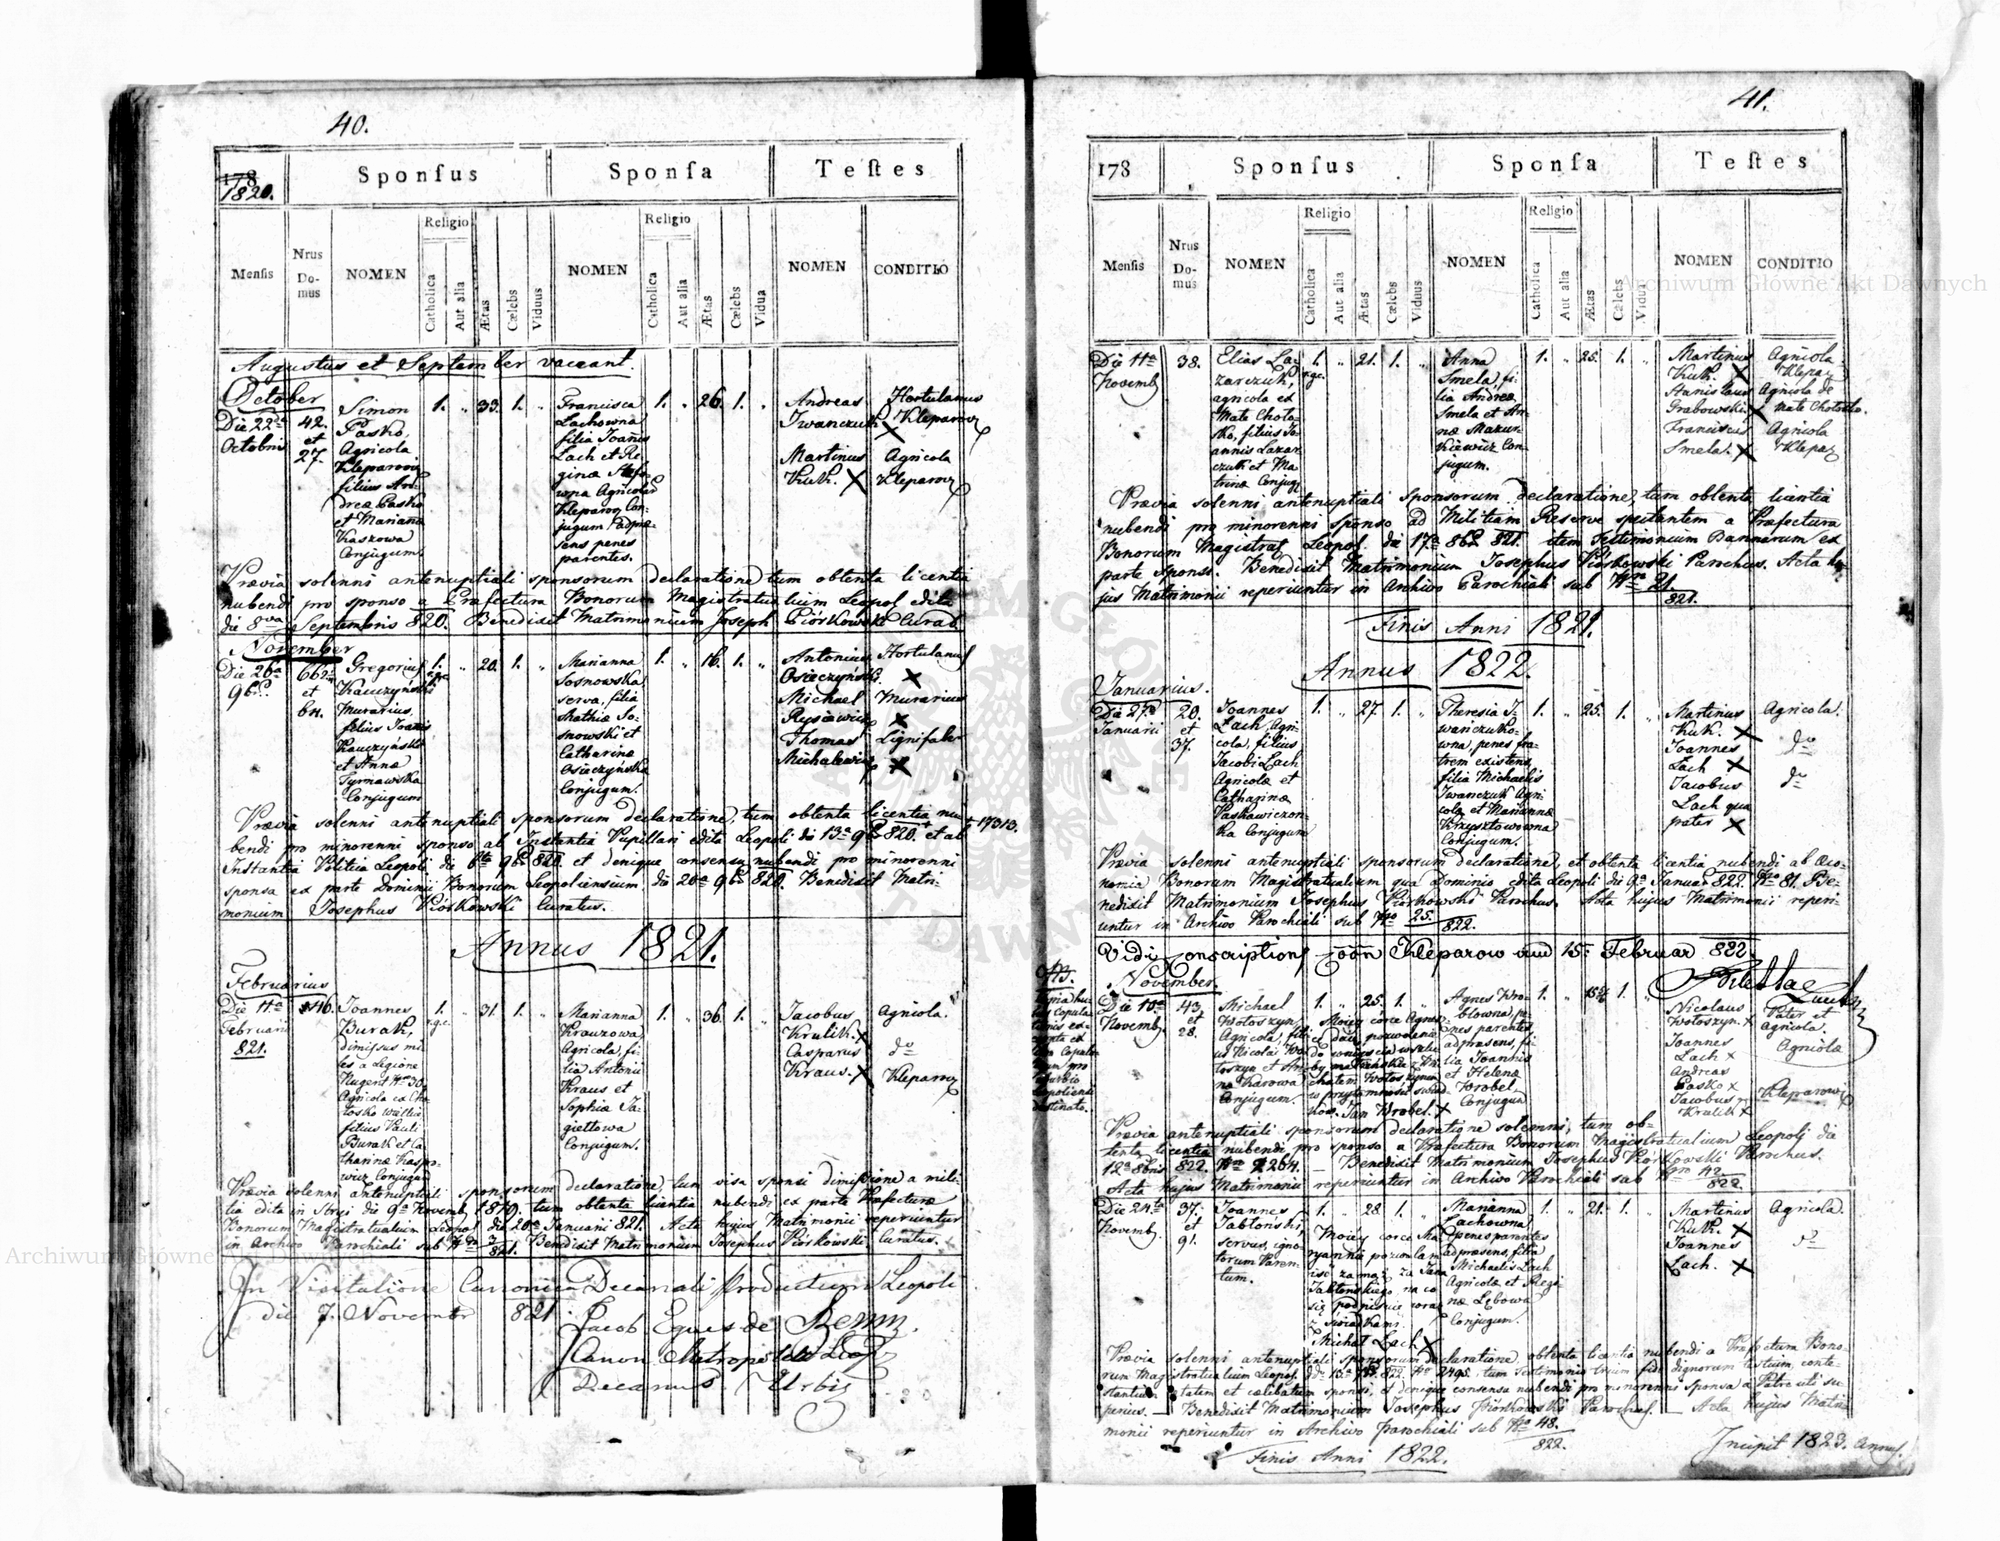 40.
178
1820.
Sponsus
Sponsa
Testes
Mensis
Nrus Domus
NOMEN
Religio
Catholica
Aut alia
Ætas
Cælebs
Viduus
NOMEN
Religio
Catholica
Aut alia
Ætas
Cælebs
Vidua
NOMEN
CONDITIO
Augustus et September vaccant.
October
Die 22a
Octobris
42.
et
27.
Simon
Pasko,
Agricola
Kleparow
filius An-
dreæ Pasko
et Mariana
Kaskowa
Conjugum.
1. " 33. 1. "
Francisca
Lachowna
filia Joañis
Lach et Re-
ginæ Stefo-
wna Agricolar
Kleparow Con-
jugum adpræ-
sens penes
parentes.
1. " 26. 1. "
Andreas
Iwanczuk X
Martinus
Kuk. X
Hortulanus
Kleparow
Agricola
Kleparow
Prævia solenni antenuptiali sponsorum declaratione, tum obtenta licentia
nubendi pro sponso a Præfectura Bonorum Magistratualium Leopol edita
die 8va Septembris 820. Benedixit Matrimonium Joseph Piórkowski Curat
November
Die 26a
9b
662
et
64.
Gregorius
Kauczyński
Murarius,
filius Joañis
Kauczyński
et Annæ
Tyrnawska
Conjugum
1. " 20. 1. "
Marianna
Sosnowska
serva, filia
Mathiæ So-
snowski et
Catharinæ
Osieczyńska
Conjugum.
1. " 16. 1. "
Antonius
Osieczyński. X
Michael
Rysiewicz X
Thomas
Michalewicz X
Hortulanus
Murarius
Lignifaber
Prævia solenni antenuptiali sponsorum declaratione, tum obtenta licentia nu- + 17313.
bendi pro minorenni sponso ab Instantia Pupillari edita Leopoli do 13a 9b 820. et ab
Instantia Politica Leopoli die 9b 820 et denique consensu nubendi pro minorenni
sponsa ex parte Dominii Bonorum Leopoliensium die 20a 9b 820. Benedixit Matri-
monium Josephus Piórkowski Curatus.
Annus 1821.
Februarius
Die 11a
Februarii
821.
146.
Joannes
Burak,
dimissus mi-
les a Legione
Nugent No 30
Agricola ex
filius Pauli
Burak et Ca-
tharinæ Kaspo-
wicz Conjugum
1. " 31. 1. "
Marianna
Krauzowa
Agricola, fi-
lia Antonii
Kraus et
Sophiæ Ja-
giettowa
Conjugum.
1. " 36. 1. "
Jacobus
Krulik. X
Casparus
Kraus. X
Agricola.
do
Kleparow
Prævia solenni antenuptiali sponsorum declaratione, tum visa sponsi dimissione a mili-
tia edita in Stryi die 9a Novemb. 1819. tum obtenta licentia nubendi ex parte Præfecturæ
Bonorum Magistratualium Leopol die 20a Januarii 821. Acta hujus Matrimonii reperiuntur
in Archivo Parochiali sub Nro 2/821. Benedixit Matrimonium Josephus Piórkowski Curatus.
In Visitatione Canonica Decanali Productum Leopoli
die 7. Novembr 821
Jacob Eques de
Canon Metropol
Decanus Urbis
41.
178
Sponsus
Sponsa
Testes
Mensis
Nrus Domus
NOMEN
Religio
Catholica
Aut alia
Ætas
Cælebs
Viduus
NOMEN
Religio
Catholica
Aut alia
Ætas
Cælebs
Vidua
NOMEN
CONDITIO
Die 11a
Novemb
38.
Elias La-
zarczuk,
agricola ex
Mate Choto-
sko, filius Jo-
annis Lazar-
czuk et Ma-
trinæ Conjug
1. " 21. 1. "
Anna
Smela, fi-
lia Andreæ
Smela et An-
næ Mazur-
kiewicz Con-
jugum.
1. " 25. 1. "
Martinus
Kuk. X
Stanislaus
Grabowski. X
Franciscus
Smela. X
Agricola
Klepar
Agricola de
Mate Chotosko.
Agricola
Klepar
Prævia solenni antenuptiali sponsorum declaratione, tum obtenta licentia
nubendi pro minorenni sponso ad Militiam Reserve spectantem a Præfectura
Bonorum Magistrat Leopol. die 17a 8b 821. item Testimonium Bannorum ex
parte Sponsi. Benedixit Matrimonium Josephus Piórkowski Parochus. Acta hu-
jus Matrimonii reperiuntur in Archivo Parochiali sub Nro 21/821.
Finis Anni 1821.
Annus 1822.
Januarius.
Die 27a
Januarii
20.
et
37.
Joannes
Lach, Agri-
cola, filius
Jacobi Lach
Agricolæ et
Catharinæ
Paskawiczon-
ka Conjugum
1. " 27. 1. "
Theresia I-
wanczuko-
wna, penes fra-
trem existens,
filia Michaelis
Iwanczuk Agri-
colæ et Mariannæ
Krzysztowowna
Conjugum.
1. " 25. 1. "
Martinus
Kuk. X
Joannes
Lach X
Jacobus
Lach qua
pater X
Agricola.
do
do
Prævia solenni antenuptiali sponsorum declaratione, et obtenta licentia nubendi ab Oeco-
nomia Bonorum Magistratualium qua Dominio edita Leopoli die 9a Januar 822. No 81. Be-
nedixit Matrimonium Josephus Piórkowski Parochus. Acta hujus Matrimonii reperi-
untur in Archivo Parochiali sub Nro 25./822.
Vidi Conscriptions Kleparow 15. Februar 822.
November.
Die 10a
Novemb
43.
et
28.
Michael
Wotoszyn
Agricola, fili-
us Nicolai Wo-
toszyn et An-
na Karowa
Conjugum.
1. " 25. 1. "
Moiey corce Agnes-
Jan Wrobel. X
Agnes Wro-
blowna, pe-
nes parentes
adpræsens, fi-
lia Joannis
et Helenæ
Wrobel
Conjugum
Nicolaus
Wotoszyn. X
Joannes
Lach X
Andreas
Pasko X
Jacobus
Krulik X
Pater et
Agricola.
Agricolæ
Kleparow
Prævia antenuptiali sponsorum declaratione solemni, tum ob-
tenta licentia nubendi pro sponso a Præfectura Bonorum Magistratualium Leopoli die
12a 8bris 822. Nro 2264. Benedixit Matrimonium Josephus Piórkowski Parochus.
Acta hujus Matrimonii reperiuntur in Archivo Parochiali sub Nro 42/822.
Die 24a
Novemb.
37.
et
91.
Joannes
Jabłoński,
servus, igno-
torum Paren-
tum.
1. " 28. 1. "
Moiey corce Ma-
ryannie pozwalam
isć za mąż za Jana
Jabłonskiego na co
się podpisuię wraz
z Swiadkami
Michał Lach X
Marianna
Lachowna
penes parentes
adpræsens, filia
Michaelis Lach
Agricolæ et Regi-
næ Lębowa
Conjugum.
1. " 21. 1. "
Martinus
Kuk. X
Joannes
Lach. X
Agricola.
do
Prævia solenni antenuptiali sponsorum declaratione obtenta licentia nubendi a Præfectura Bono-
rum Magistratualium Leopol. 822 Nro 2495. tum Testimonio trium fide dignorum testium, conte-
stantium ætatem et cælibatum sponsi, et denique consensu nubendi pro minorenni sponsa a Patre uti su-
perius. Benedixit Matrimonium Josephus Piórkowski Parochus. Acta hujus Matri-
monii reperiuntur in Archivo Parochiali sub Nro 48./822.
Finis Anni 1822.
Incipit 1823. Annus.
Archiwum Główne Akt Dawnych
Archiwum Główne Akt Dawnych